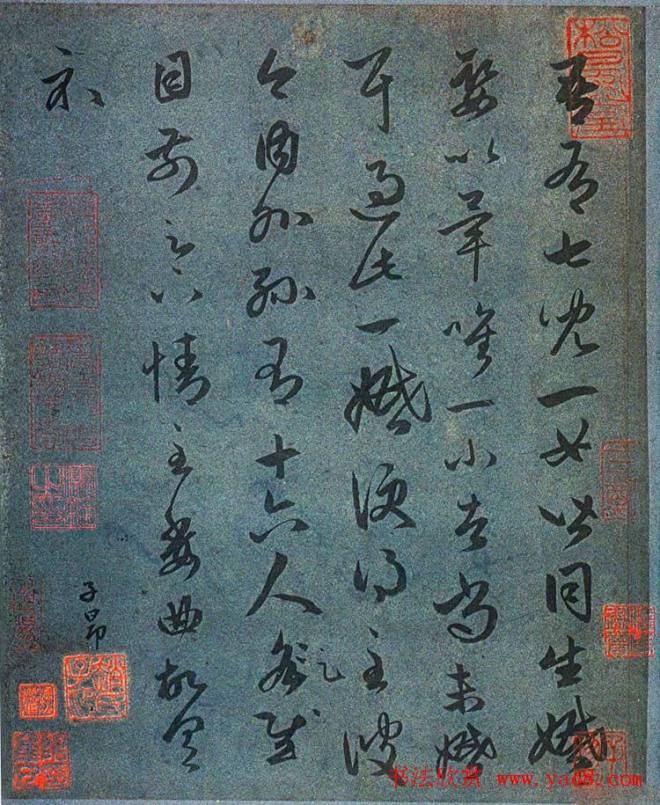 吾有七兒一女皆同生婚
娶以畢唯一小者尚未婚
耳過此一婚便得至彼
今內外孫有十六人足慰
目前足下情至委曲故具
示
子昂
趙氏子昂
书法欣赏 www.yac8.com